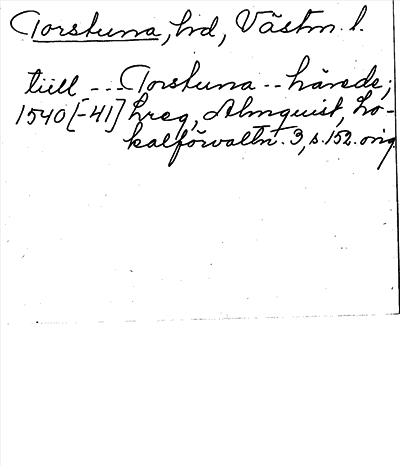 Torstuna, hd, Västm. l.
tiill --- Torstuna -- härede;
1540 [-41] hreg, Almquist, Lo-
kalförvaltn. 3, s. 152. orig.